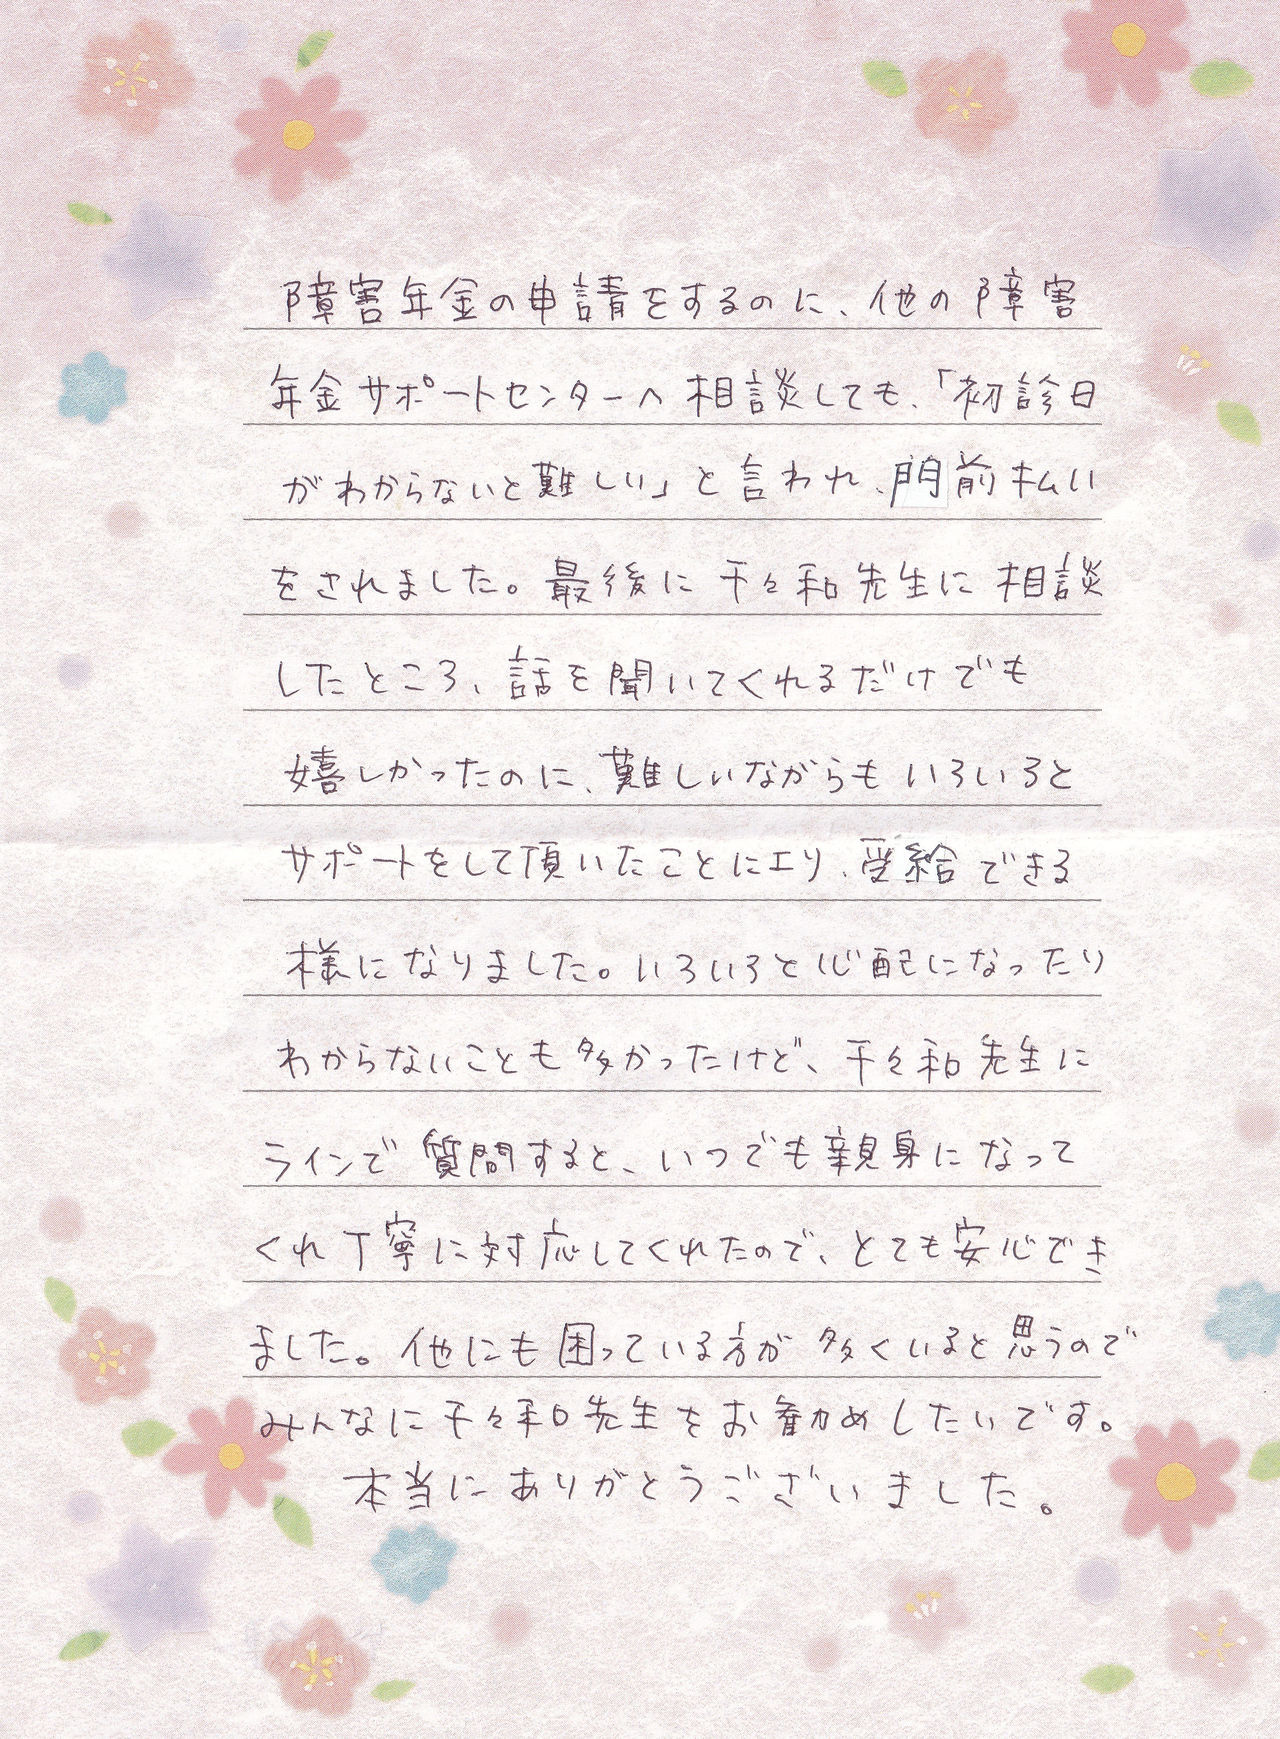 障害年金の申請をするのに、他の障害
年金サポートセンターへ相談しても、「初診日
がわからないと難しい」と言われ、門前払い
をされました。最後に千々和先生に相談
したところ、話を聞いてくれるだけでも
嬉しかったのに、難しいながらもいろいろと
サポートをして頂いたことにより、受給できる
様になりました。いろいろと心配になったり
わからないことも多かったけど、千々和先生に
ラインで質問すると、いつでも親身になって
くれ丁寧に対応してくれたので、とても安心でき
ました。他にも困っている方が多くいると思うので
みんなに千々和先生をお勧めしたいです。
本当にありがとうございました。